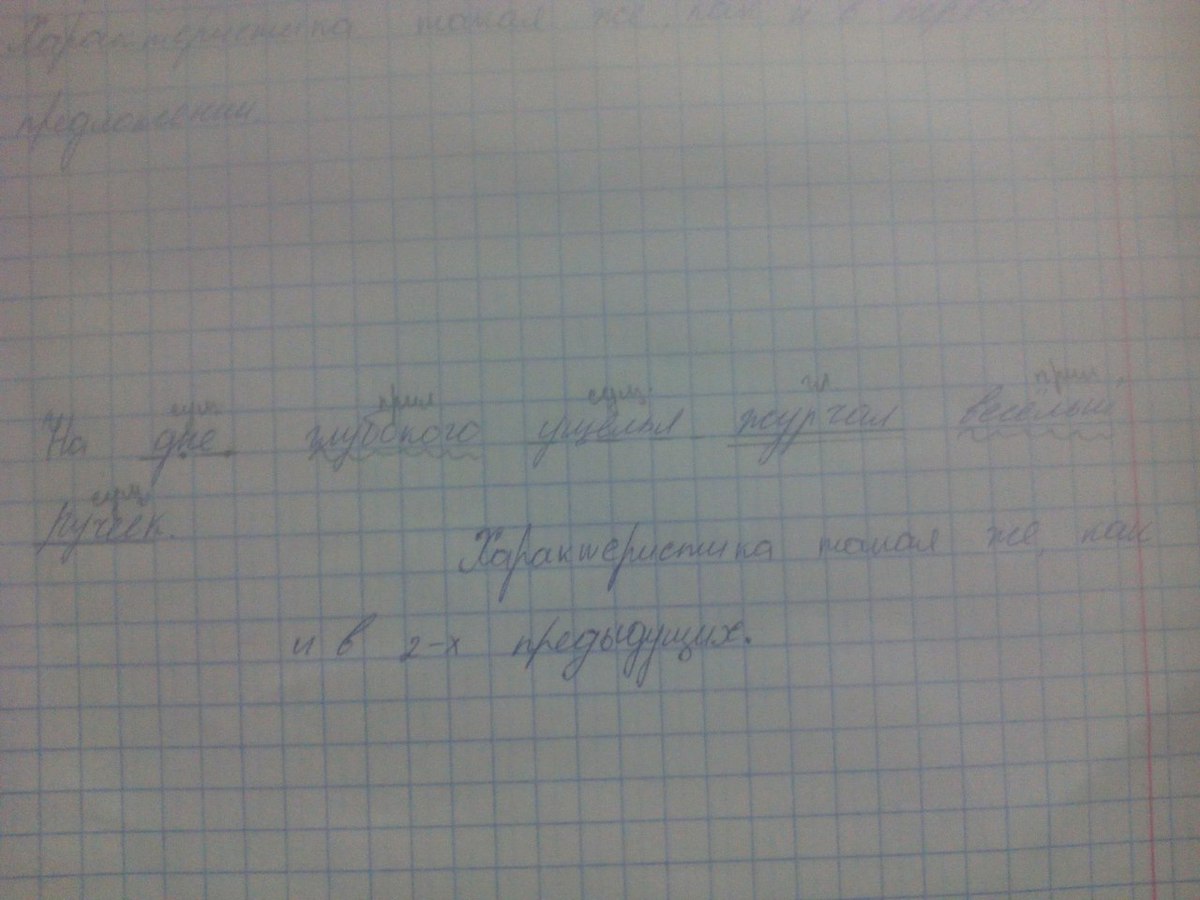 Характеристика такая же, как и в первом
предложении.
сущ. прил сущ. гл прил.
На дне глубокого ущелья журчал веселый
сущ.
ручеек.
Характеристика такая же, как
и в 2-х предыдущих.